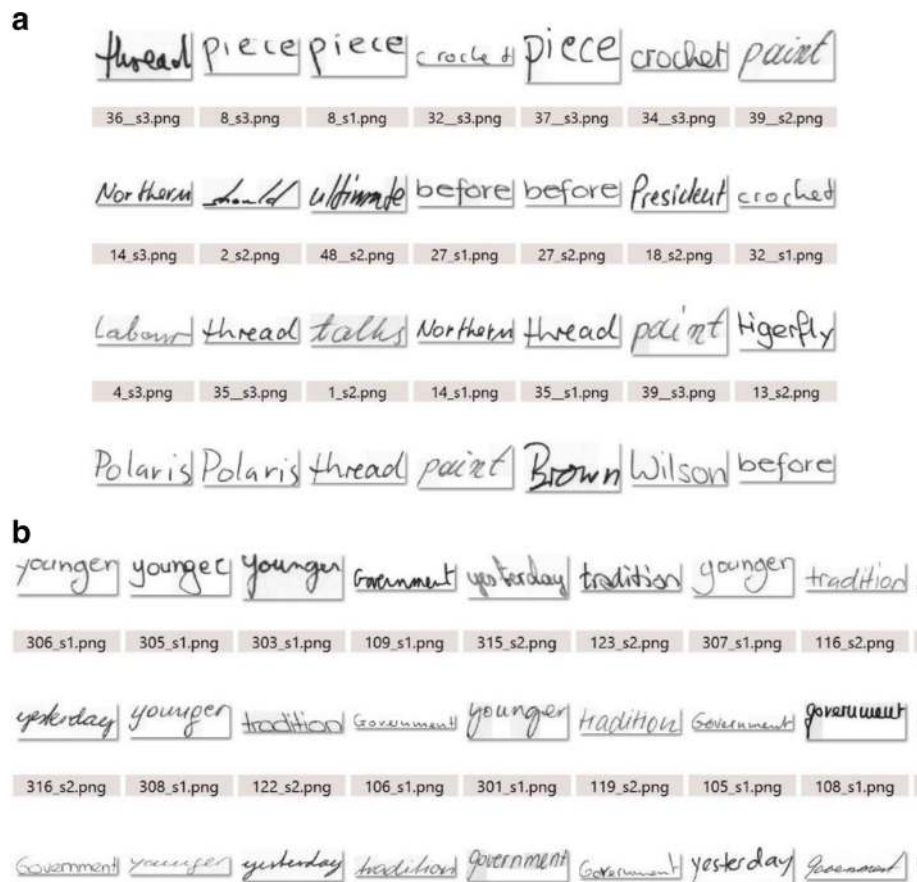 a
thread piece piece croched piece crochet paint
36__s3.png 8_s3.png 8_s1.png 32__s3.png 37__s3.png 34__s3.png 39__s2.png
Northern should ultimate before before President croched
14_s3.png 2_s2.png 48__s2.png 27_s1.png 27_s2.png 18_s2.png 32__s1.png
Labour thread talks Northern thread paint tigerfly
4_s3.png 35__s3.png 1_s2.png 14_s1.png 35__s1.png 39__s3.png 13_s2.png
Polaris Polaris thread paint Brown Wilson before
b
younger younger younger Government yesterday tradition younger tradition
306_s1.png 305_s1.png 303_s1.png 109_s1.png 315_s2.png 123_s2.png 307_s1.png 116_s2.png
yesterday younger tradition Government younger tradition Government government
316_s2.png 308_s1.png 122_s2.png 106_s1.png 301_s1.png 119_s2.png 105_s1.png 108_s1.png
Government younger yesterday tradition government Government yesterday government